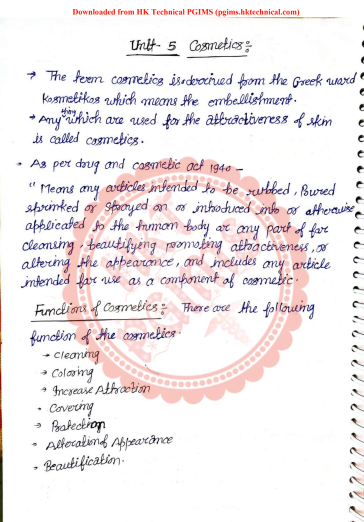 Downloaded from HK Technical PGIMS (pgims.hktechnical.com)
Unit- 5 Cosmetics:-
→ The term cosmetics is derived from the Greek ward
Kosmetikos which means the embellishment.
→ Any thing which are used for the attractiveness of skin
is called cosmetics.
→ As per drug and cosmetic act 1940 -
" Means any articles intended to be rubbed, Poured
sprinkled or sprayed on or introduced into or otherwise
applicated to the human body or any part of for
cleansing, beautifying promoting attractiveness, or
altering the appearance, and includes any article
intended for use as a component of cosmetic.
Functions of Cosmetics:- There are the following
function of the cosmetics.
→ Cleaning
→ Coloring
→ Increase Attraction
→ Covering
→ Protection
→ Alteration of Appearance
→ Beautification.